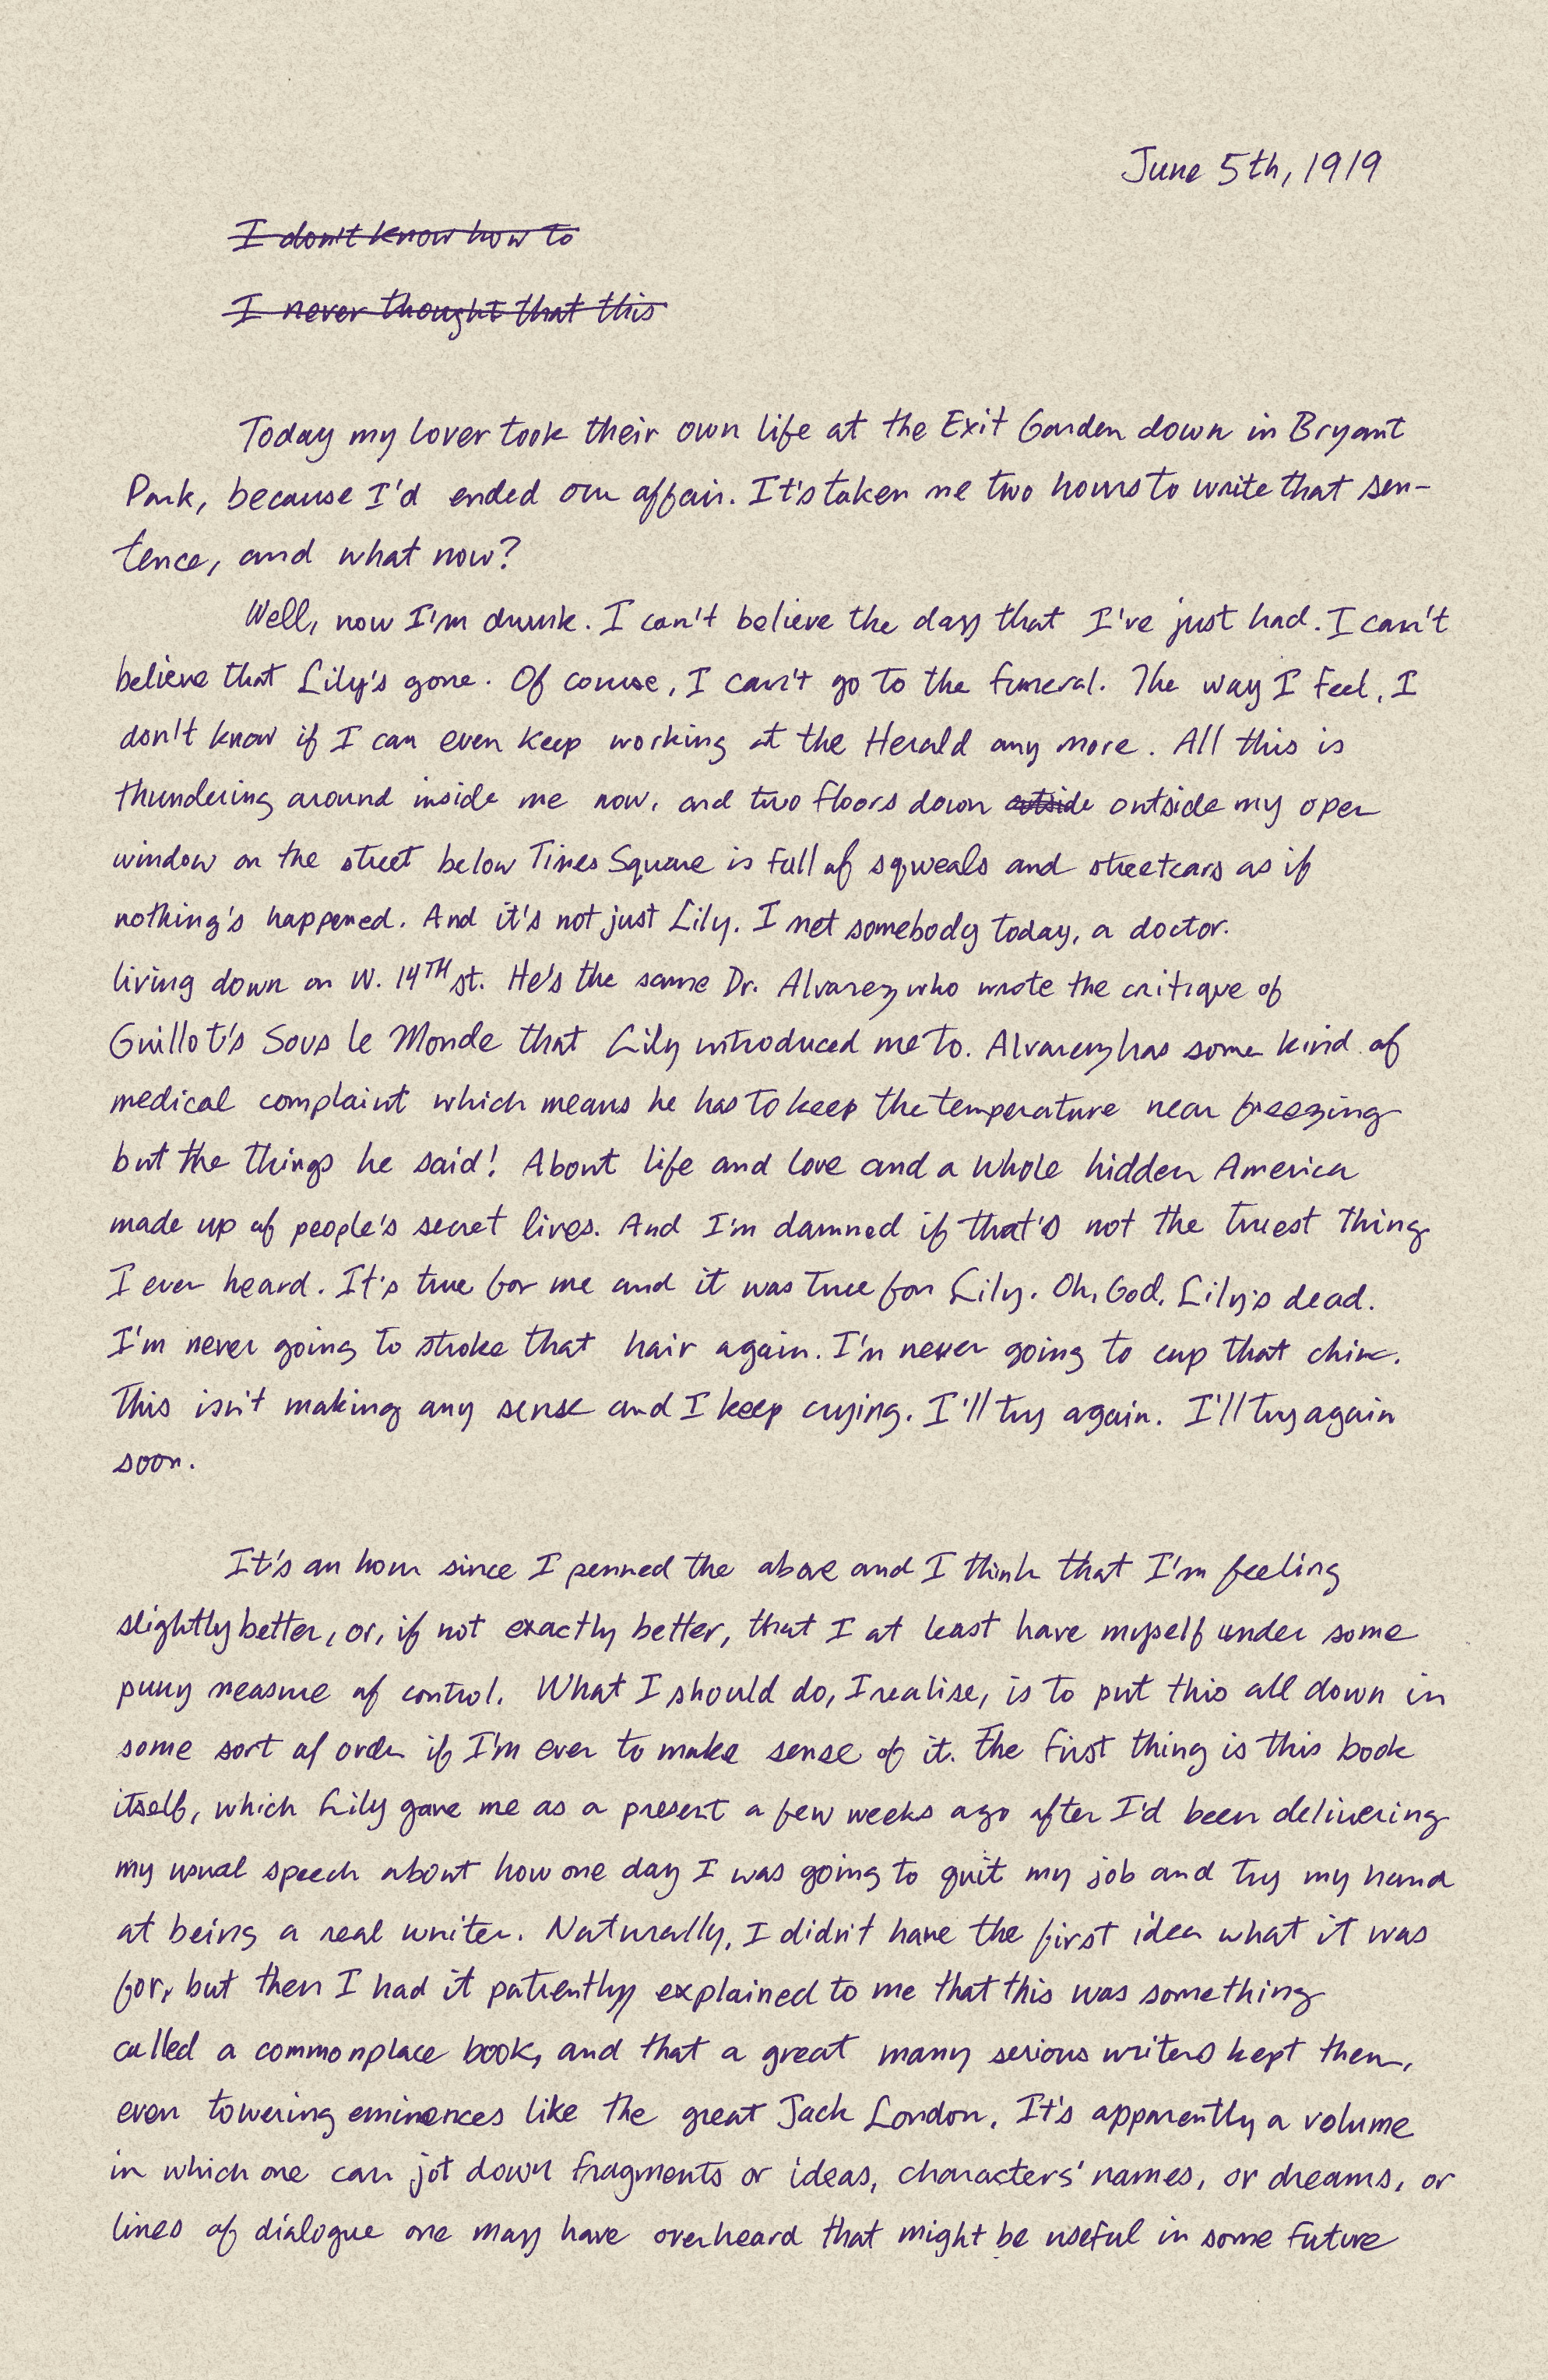 June 5th, 1919
I don't know how to
I never thought that this
Today my lover took their own life at the Exit Garden down in Bryant
Park, because I'd ended our affair. It's taken me two hours to write that sen-
tence, and what now?
Well, now I'm drunk. I can't believe the day that I've just had. I can't
believe that Lily's gone. Of course, I can't go to the funeral. The way I feel, I
don't know if I can even keep working at the Herald any more. All this is
thundering around inside me now, and two floors down outside outside my open
window on the street below Times Square is full of sqweals and streetcars as if
nothing's happened. And it's not just Lily. I met somebody today, a doctor.
living down on W. 14TH st. He's the same Dr. Alvarez who wrote the critique of
Guillot's Sous le Monde that Lily introduced me to. Alvarez has some kind of
medical complaint which means he has to keep the temperature near freezing
but the things he said! About life and love and a whole hidden America
made up of people's secret lives. And I'm damned if that's not the truest thing
I ever heard. It's true for me and it was true for Lily. Oh, God, Lily's dead.
I'm never going to stroke that hair again. I'm never going to cup that chin.
This isn't making any sense and I keep crying. I'll try again. I'll try again
soon.
It's an hour since I penned the above and I think that I'm feeling
slightly better, or, if not exactly better, that I at least have myself under some
puny measure of control. What I should do, I realise, is to put this all down in
some sort of order if I'm ever to make sense of it. The first thing is this book
itself, which Lily gave me as a present a few weeks ago after I'd been delivering
my usual speech about how one day I was going to quit my job and try my hand
at being a real writer. Naturally, I didn't have the first idea what it was
for, but then I had it patiently explained to me that this was something
called a commonplace book, and that a great many serious writers kept them,
even towering eminences like the great Jack London. It's apparently a volume
in which one can jot down fragments or ideas, characters' names, or dreams, or
lines of dialogue one may have overheard that might be useful in some future